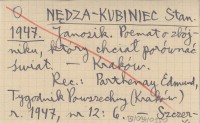 NĘDZA-KUBINIEC Stan.
1947. Janosik. Poemat o zbój-
niku, który chciał porównać
świat. - Kraków.
Rec.: Parthenay Edmund,
Tygodnik Powszechny (Kraków)
r. 1947, nr 12: 6. Szczer-